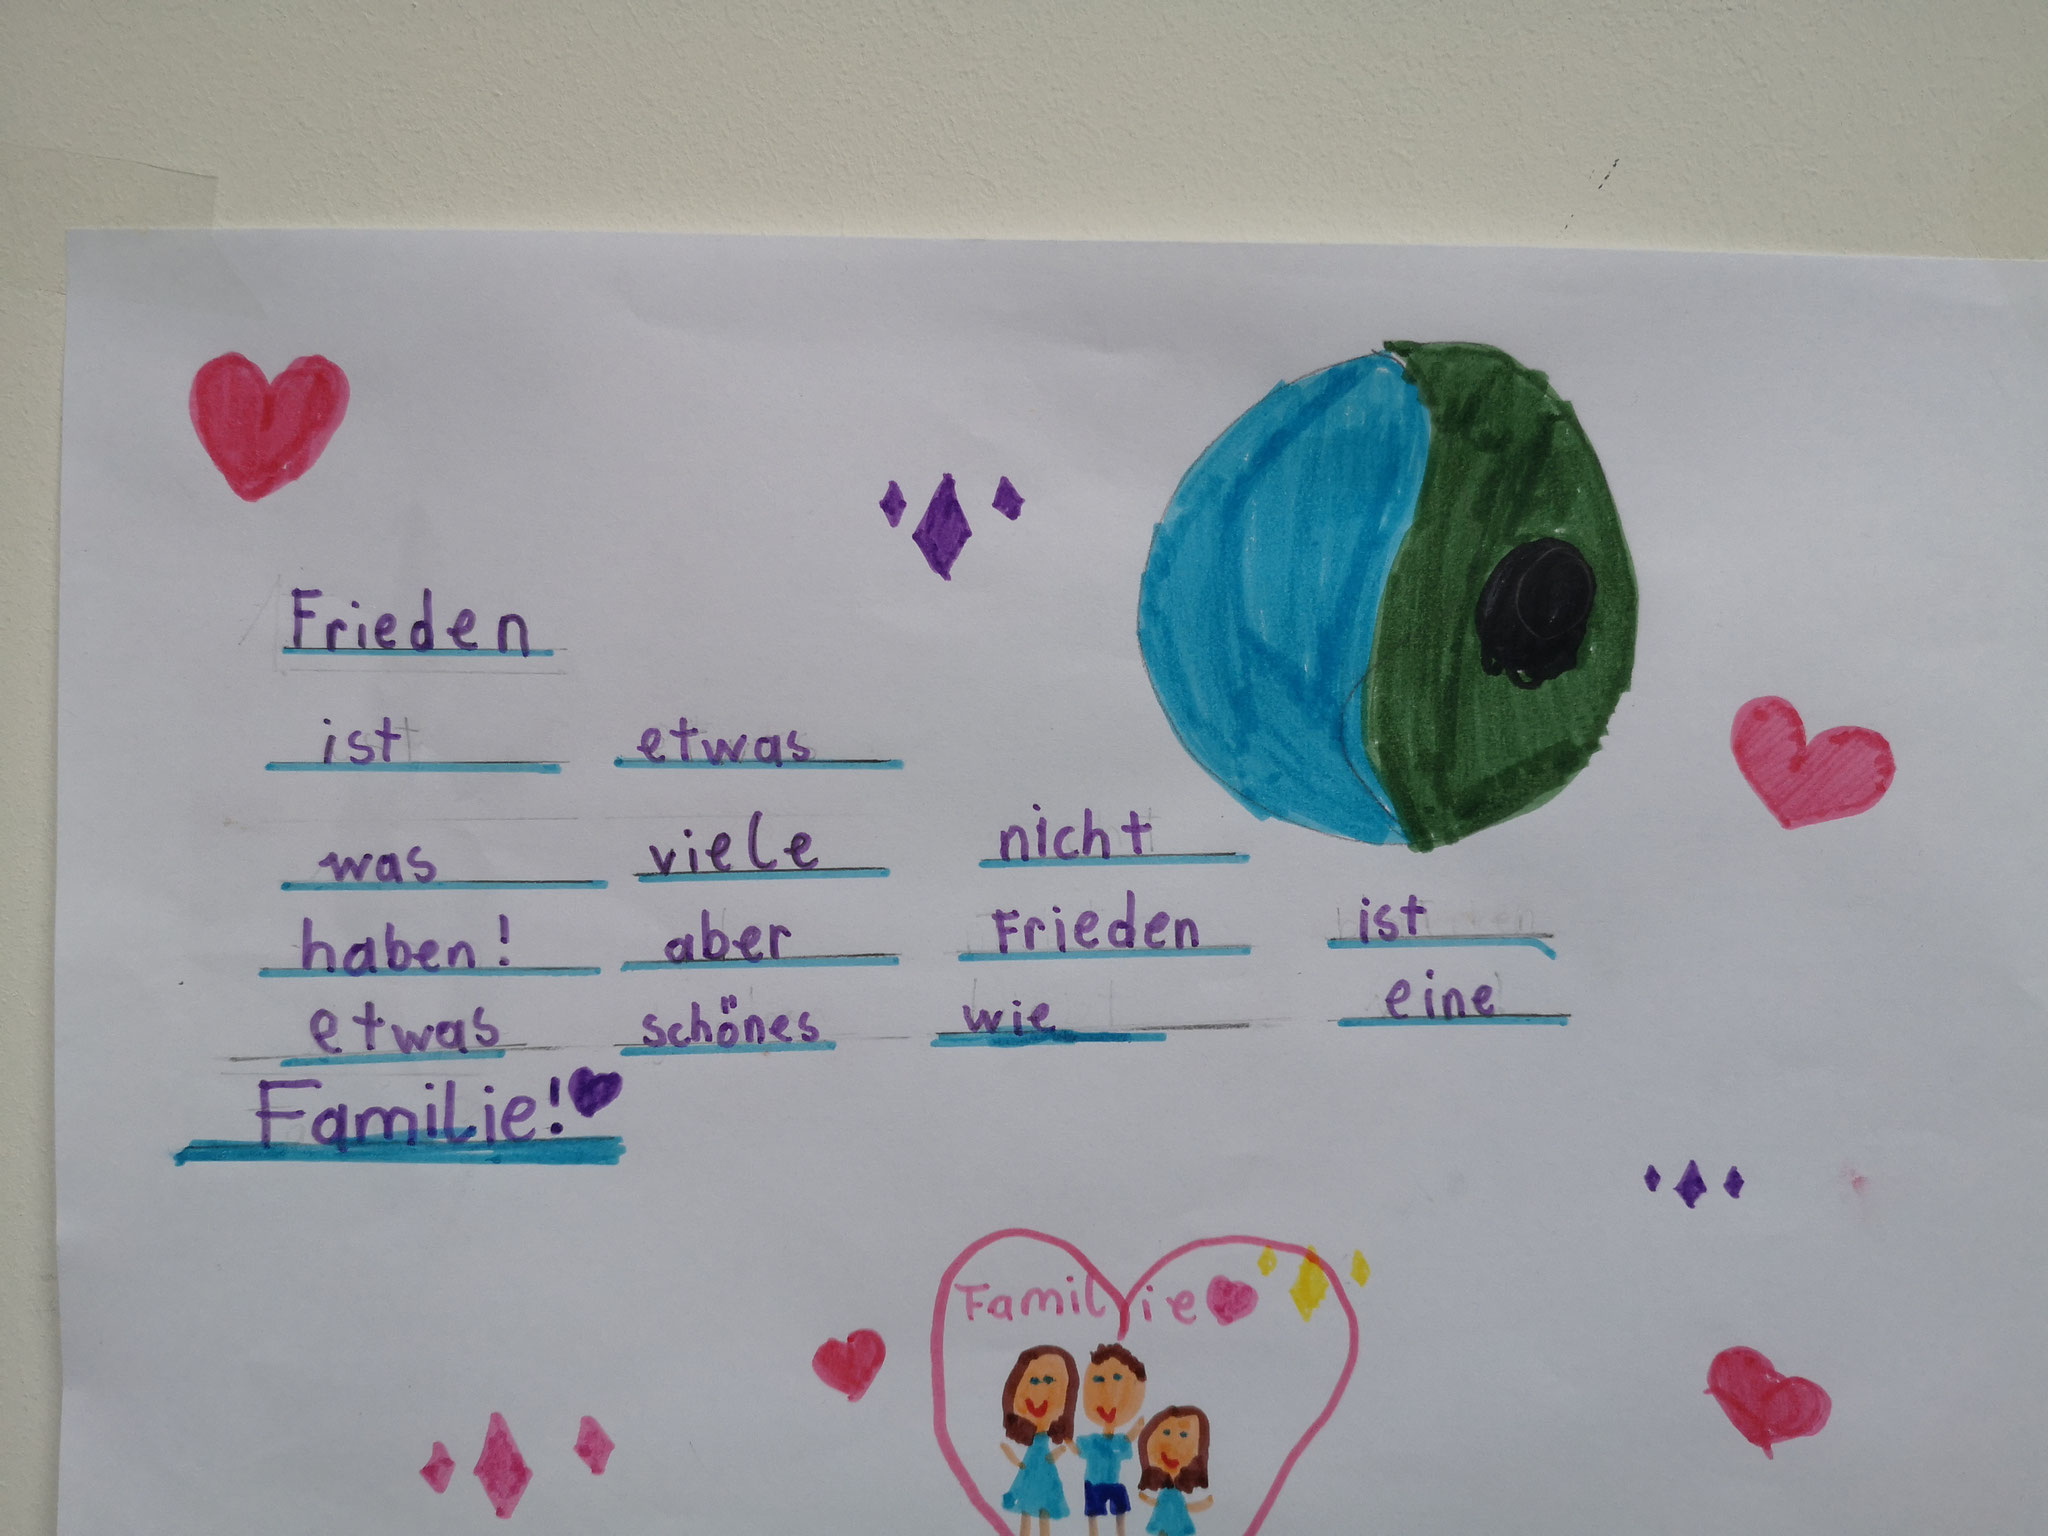 Frieden
ist etwas
was viele nicht
haben! aber Frieden ist
etwas schönes wie eine
Familie!
Familie